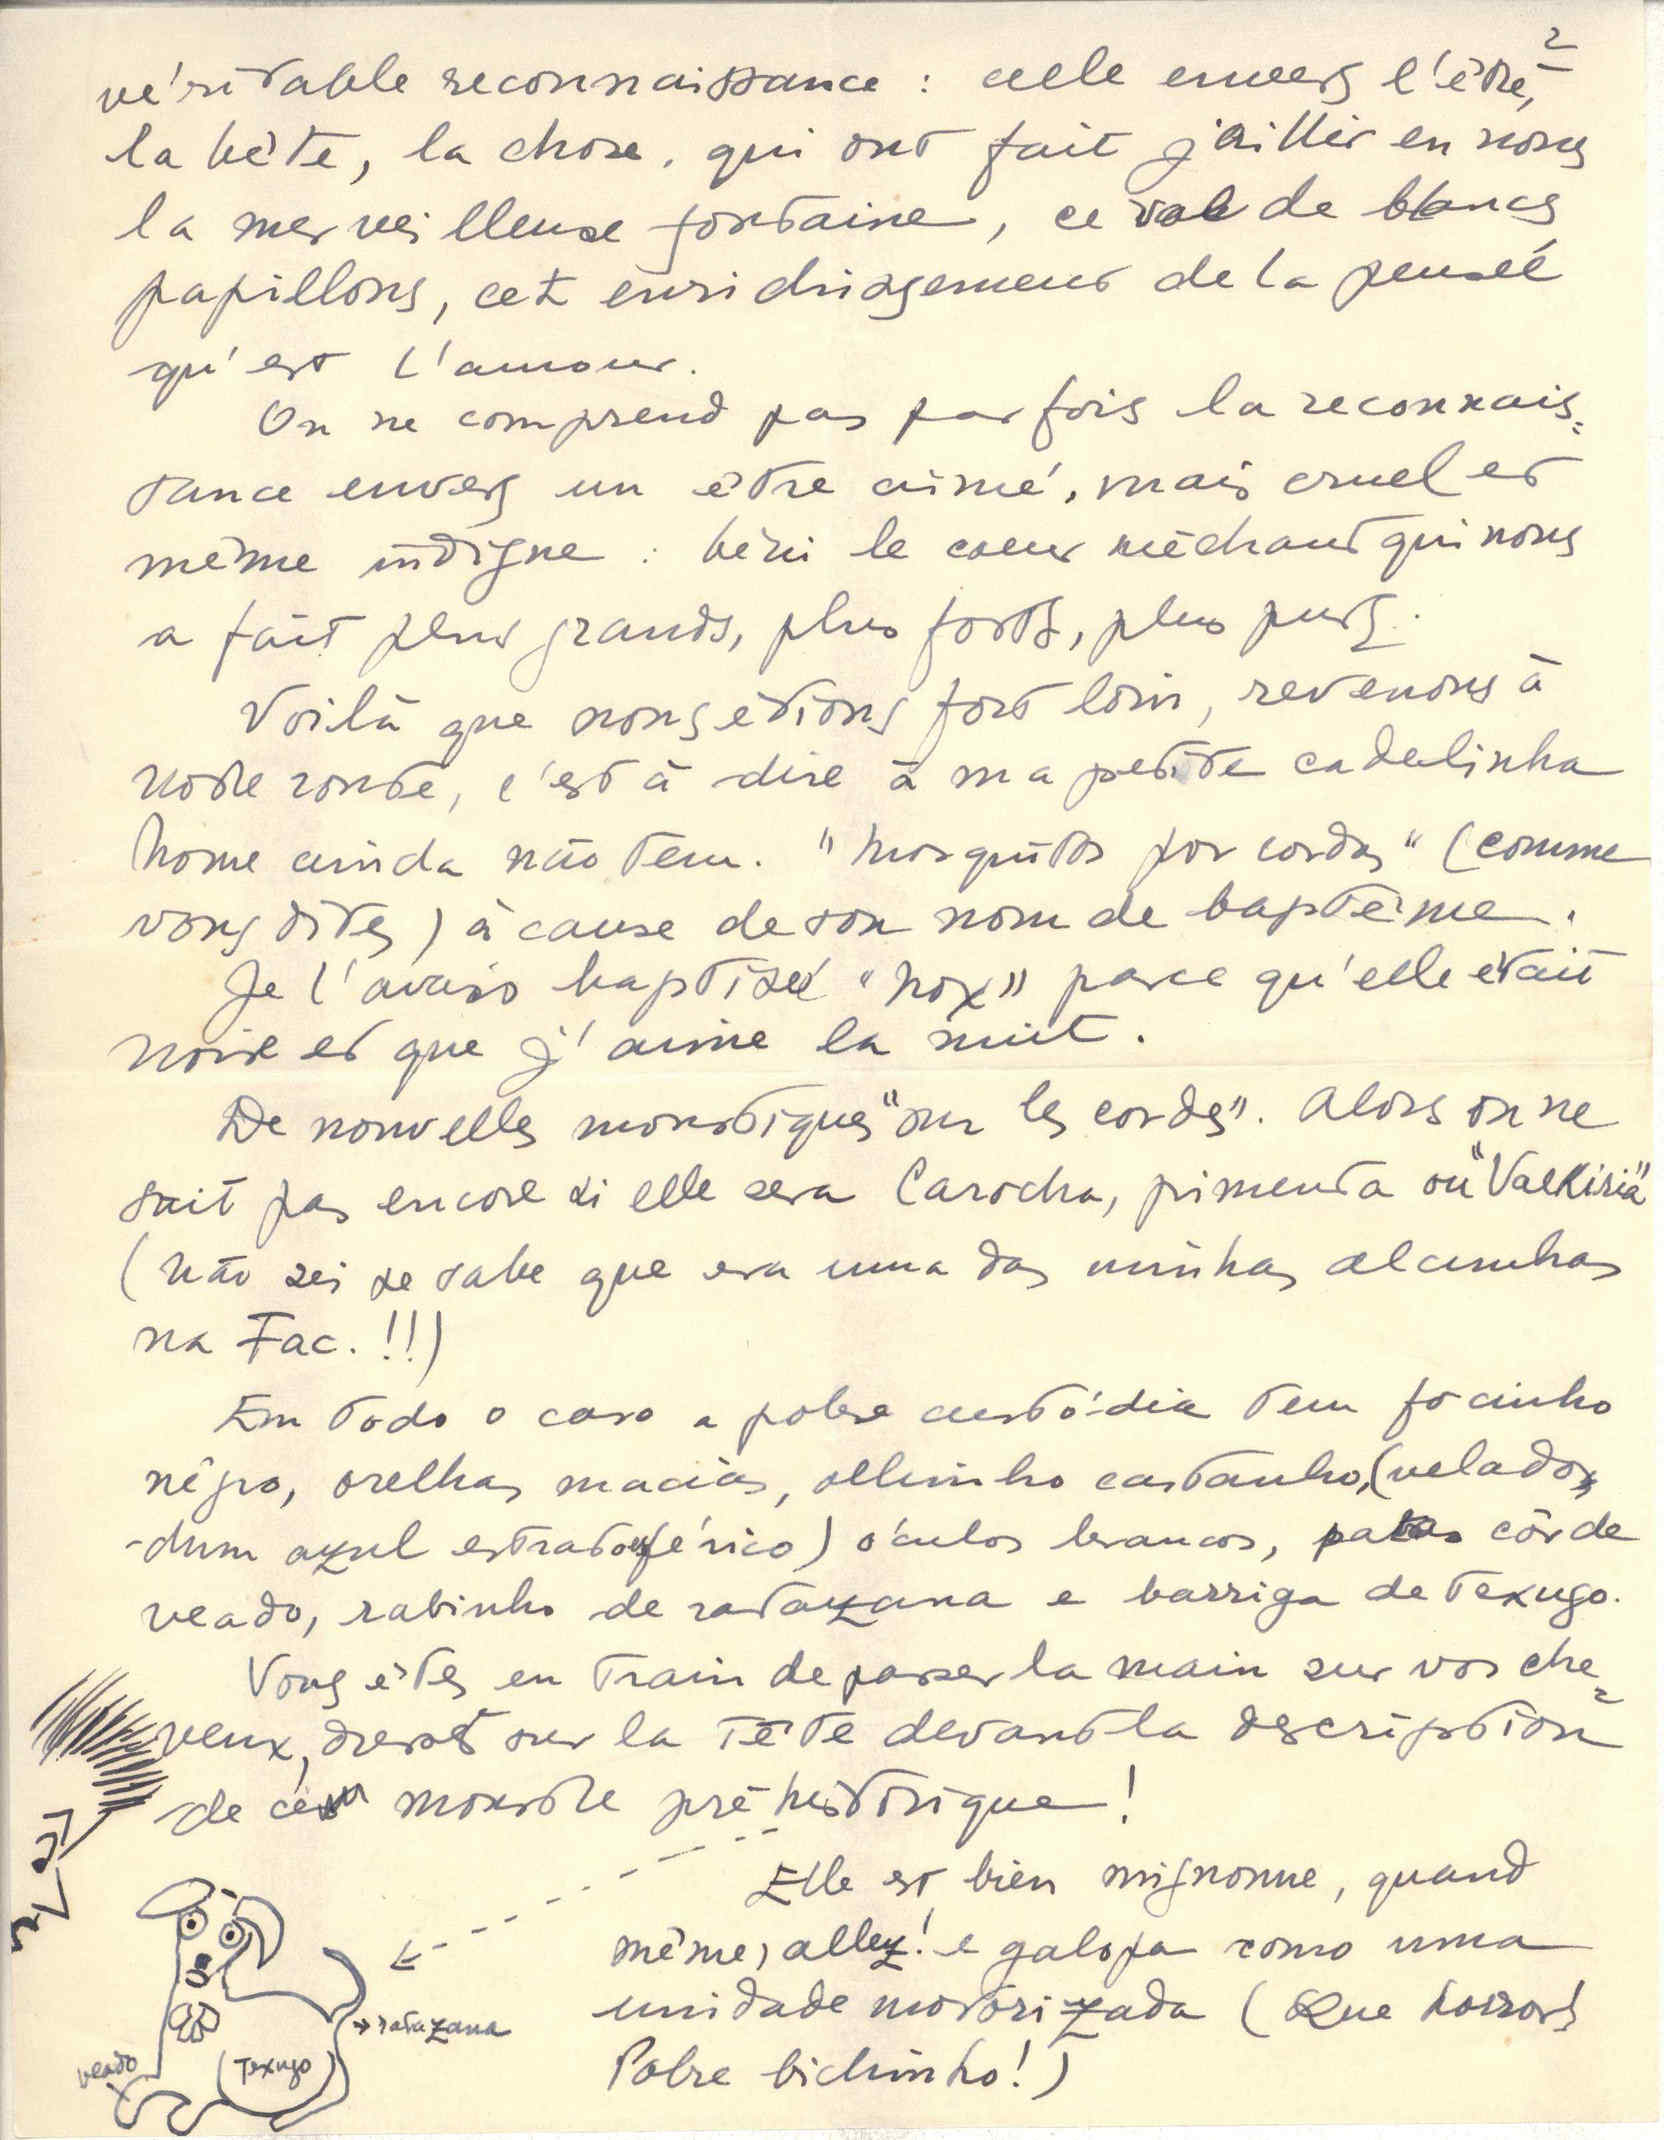 2
véritable reconnaissance : celle envers l'être,
la bête, la chose, qui ont fait jaillir en nous
la merveilleuse fontaine, ce vol de blancs
papillons, cet enrichissement de la pensée
qu'est l'amour.
On ne comprend pas parfois la reconnais=
sance envers un être aimé, mais cruel et
même indigne : béni le coeur méchant qui nous
a fait plus grands, plus forts, plus purs.
Voilà que nous étions fort loin, revenons à
notre ronde, c'est à dire à ma petite cadelinha
Nome ainda não tem. "Mosquitos por cordas" (comme
vous dites) à cause de son nom de baptême.
Je l'avais baptisée "Nox" parce qu'elle était
noire et que j'aime la nuit.
De nouvelles moustiques "sur les cordes". Alors on ne
sait pas encore si elle sera Carocha, pimenta ou "Valkiria"
(Não sei se sabe que era uma das minhas alcunhas
na Fac. !!!)
Em todo o caso a pobre custódia tem focinho
négro, orelhas macias, olhinho castanho, (velados
dum azul estratosférico) óculos brancos, patas côr de
veado, rabinho de ratazana e barriga de texugo.
Vous êtes en train de passer la main sur vos che=
veux, dressés sur la tête devant la description
de ce monstre préhistorique !
Elle est bien mignonne, quand
même, allez! e galopa como uma
unidade motorizada (Que horror!
Pobre bichinho!)
ratazana
veado
Texugo